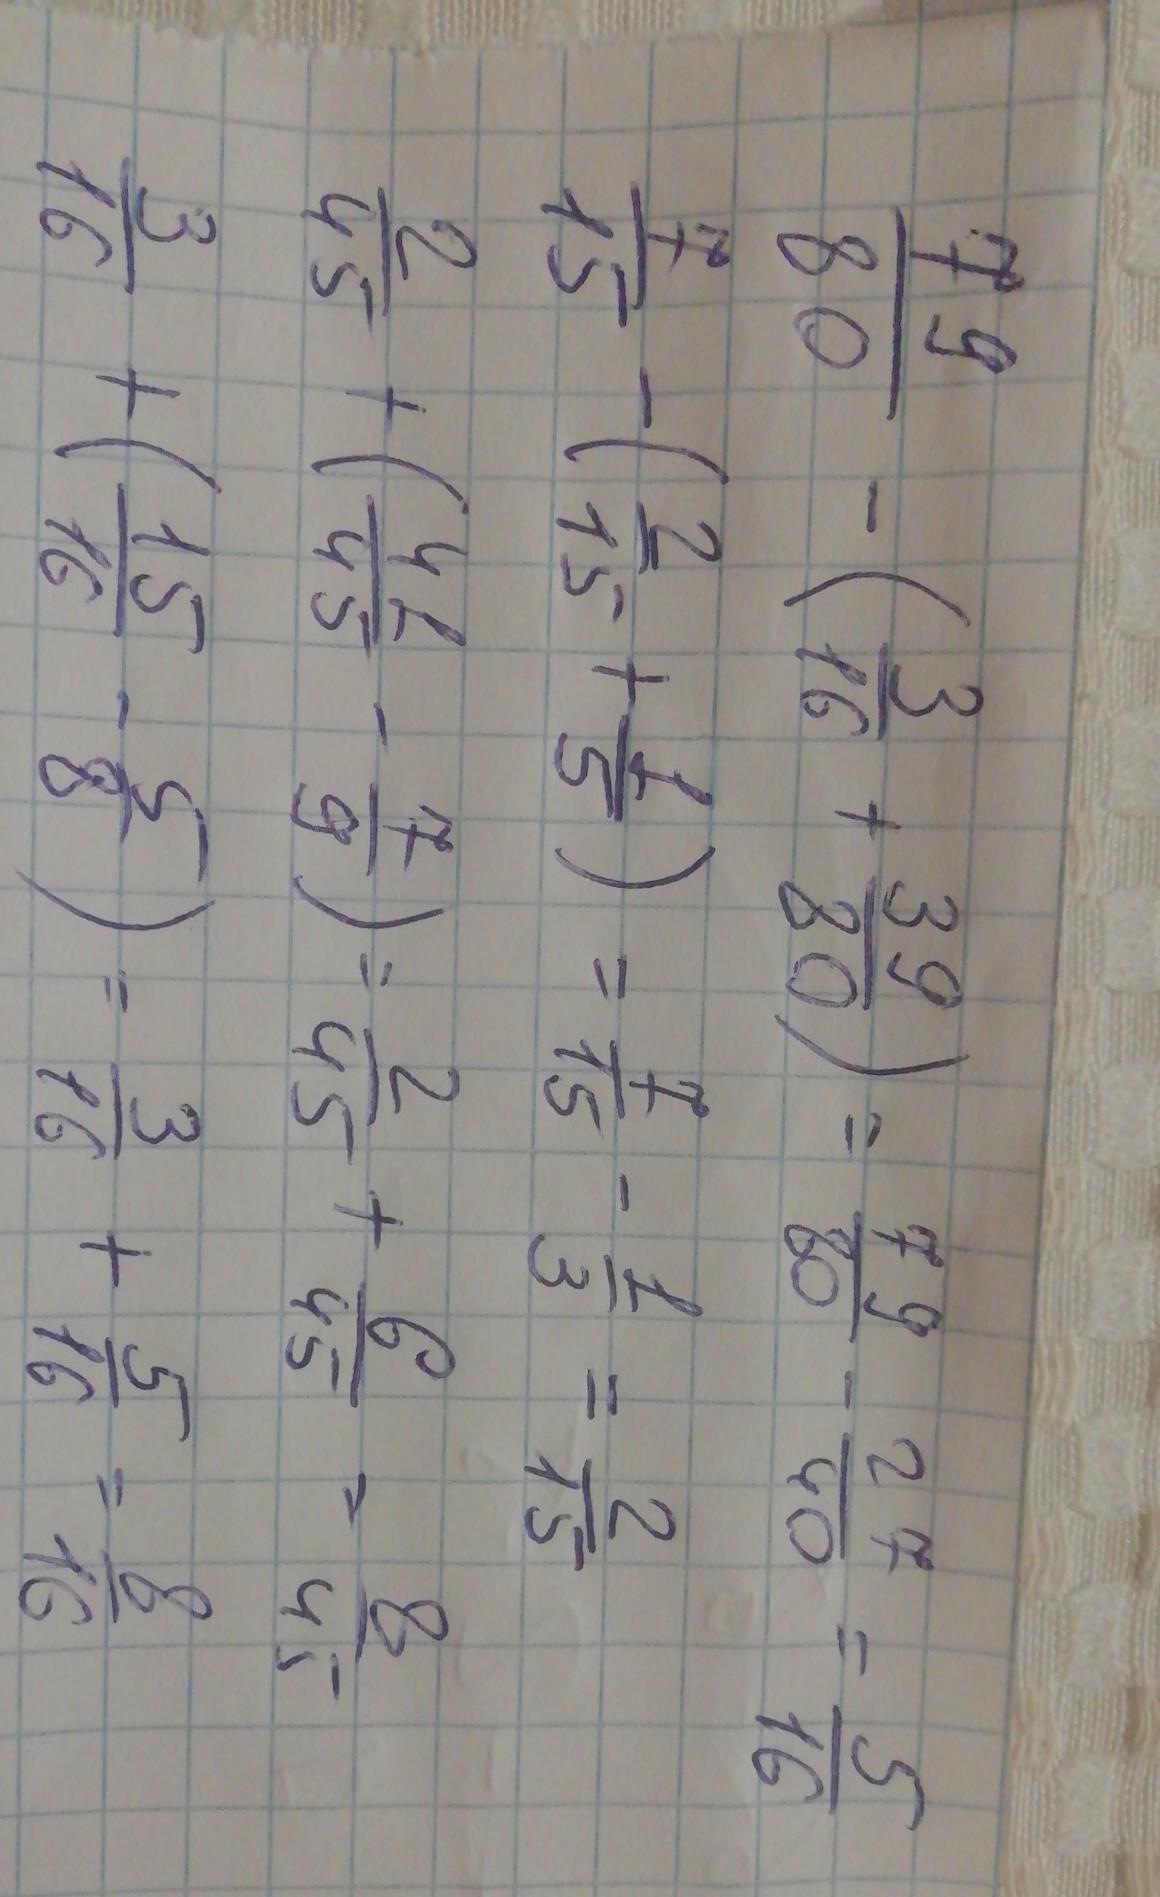 79/80 - (3/16 + 39/80) = 79/80 - 27/40 = 5/16
7/15 - (2/15 + 1/5) = 7/15 - 1/3 = 2/15
2/45 + (41/45 - 7/9) = 2/45 + 6/45 = 8/45
3/16 + (15/16 - 5/8) = 3/16 + 5/16 = 8/16